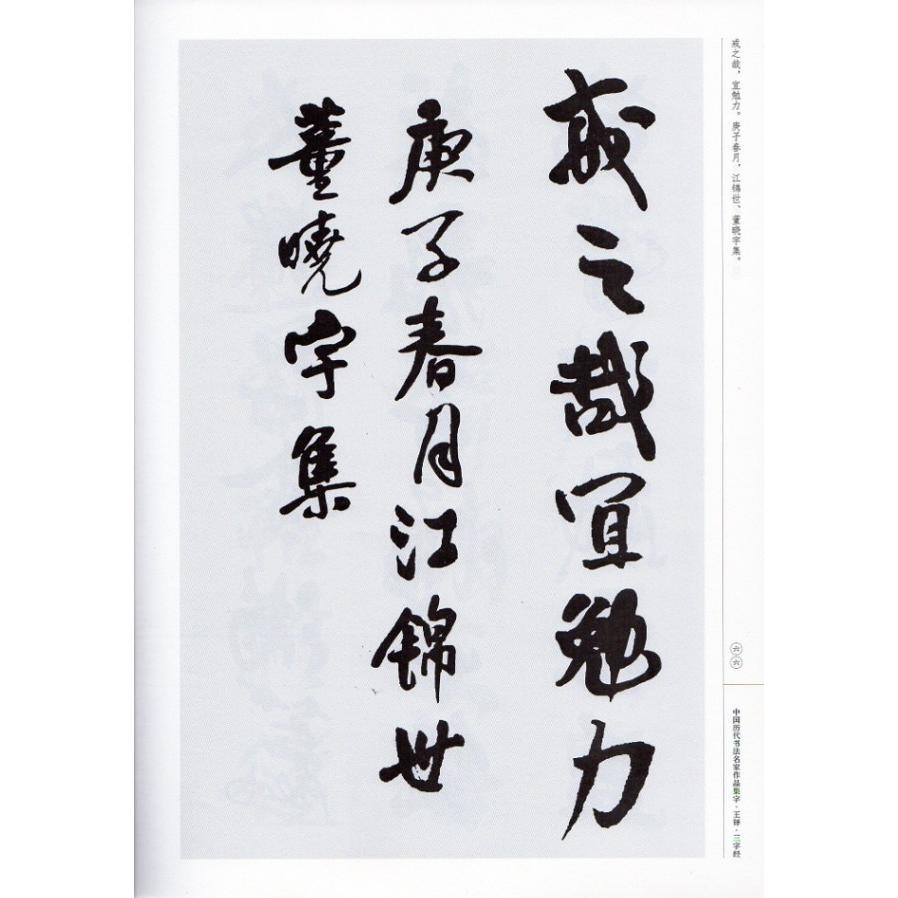 戒之哉宜勉力
庚子春月江锦世
董曉字集
戒之哉，宜勉力。庚子春月，江锦世、董晓字集。
六六
中国历代书法名家作品集字·王铎·三字经